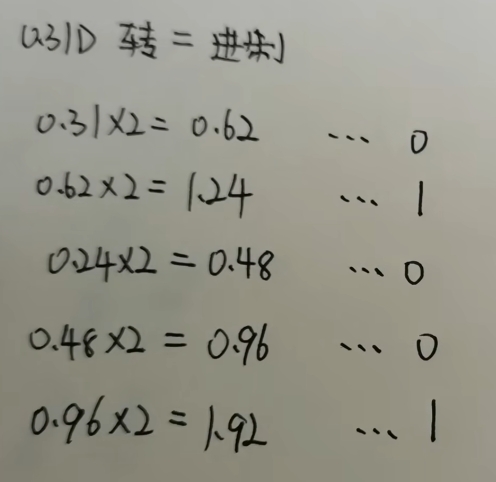 0.31D 转二进制
0.31×2= 0.62 ... 0
0.62×2=1.24 ... 1
0.24×2=0.48 ... 0
0.48×2= 0.96 ... 0
0.96×2=1.92 ... 1